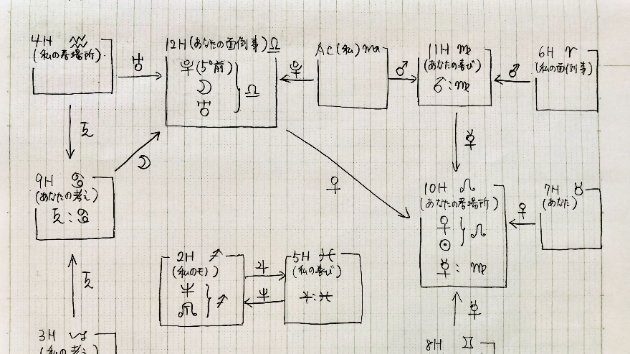 4H ♒
(私の居場所)
♅
12H (あなたの面倒事) ♎
♀(5°前)
☽
♅
♎
♀
Ac (私) ♏
♂
11H ♍
(あなたの喜び)
♂:♍
♂
6H ♈
(私の面倒事)
☽
☿
9H ♋
(あなたの考え)
:♋
♀
10H ♌
(あなたの居場所)
♀
☉
♌
☿: ♍
♀
7H ♉
(あなた)
2H ♐
(私のモノ)
♐
♃
♆
5H ♓
(私の喜び)
:♓
☿
3H ♑
(私の考え)
8H ♊